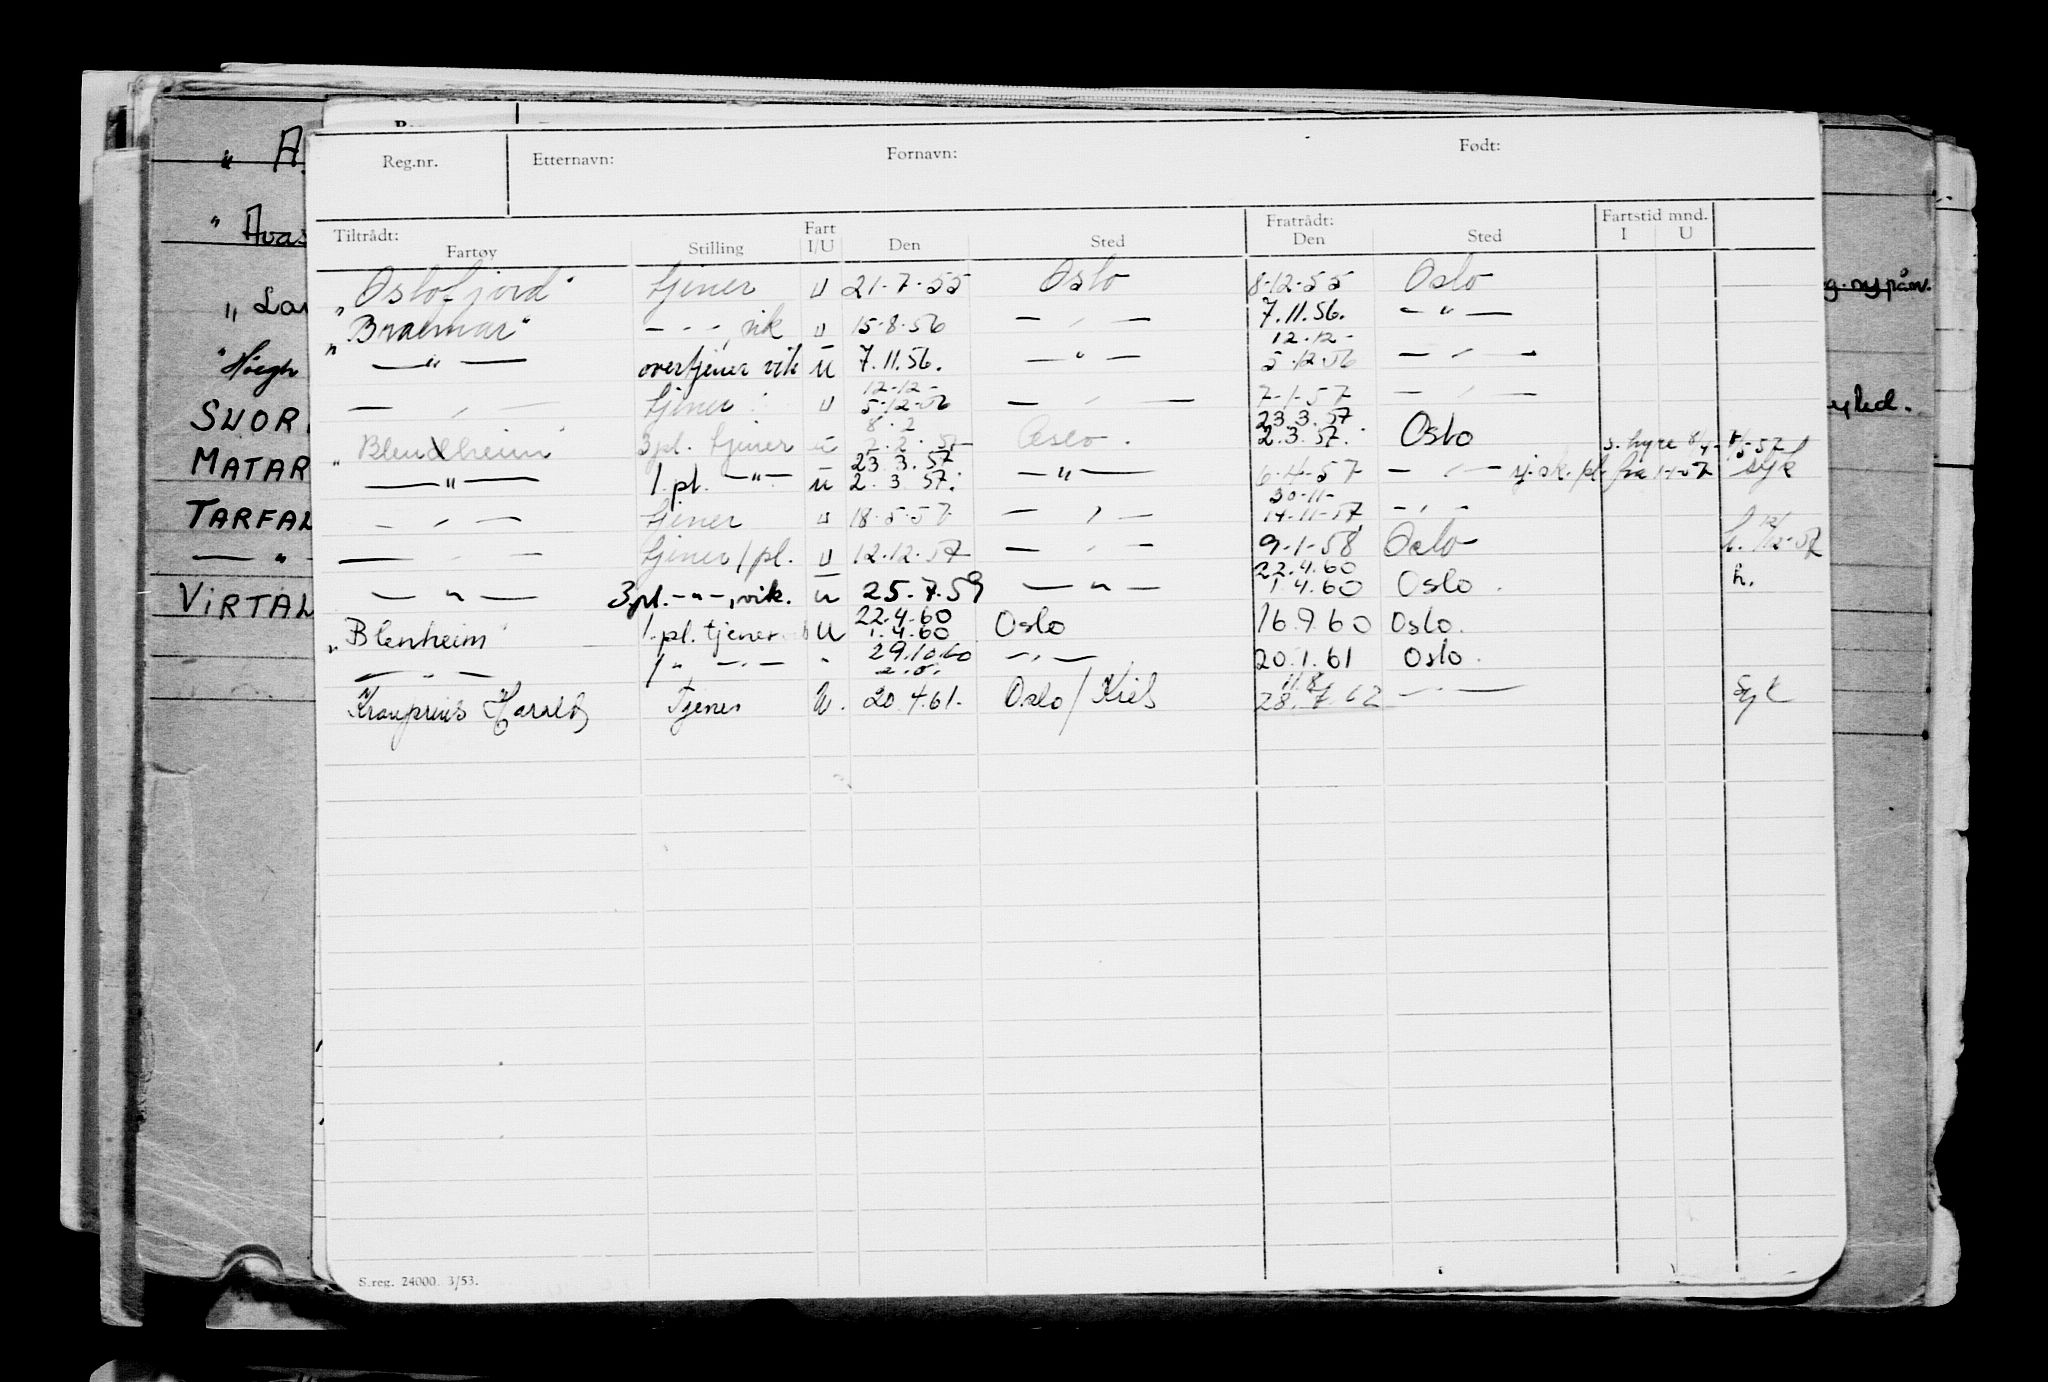 Reg.nr. Etternavn: Fornavn: Født:
Tiltrådt: Fartøy Stilling Fart I/U Den Sted Fratrådt: Den Sted Fartstid mnd. I U
"Oslofjord" tjener U 21-7-55 Oslo 8-12-55 Oslo
"Braemar" — " —, vik U 15-8-56 — " — 7.11.56. — " —
12-12-
— " — overtjener vik U 7.11.56. — " — 5-12-56 — " —
12-12-
— " — tjener U 5-12-56 — " — 7-1-57 — " —
8-2 23.3.57
"Blendheim" 3pl. tjener U 7-2-57 Oslo. 2.3.57. Oslo s. hyre
23.3.57
— " — 1.pl. — " — U 2.3.57. — " — 6-4-57 — " — fra syk
30-11-
— " — tjener U 18-5-57 — " — 14-11-57 — " —
— " — tjener/pl. U 12-12-57 — " — 9-1-58 Oslo h. 12/12-57
22.4.60
— " — 3pl. — " —, vik. U 25.7.59 — " — 1.4.60 Oslo. h.
22.4.60
"Blenheim" 1.pl. tjener U 1.4.60 Oslo 16.9.60 Oslo.
29.10.60
— " — 1 " — " — " — " — 20.1.61 Oslo.
11.8.
Kronprins Harald Tjener U. 20.4.61. Oslo/Kiel 28.7.62 — " — Syk
S.reg. 24000. 3/53.
"Høegh
SUOR
MATAR
TARFAL
— " —
VIRTAL